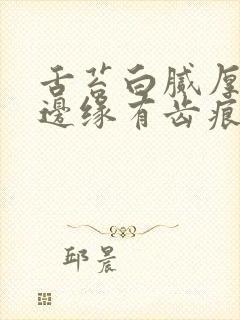 舌苔白腻厚
邊缘有齿痕
邱晨